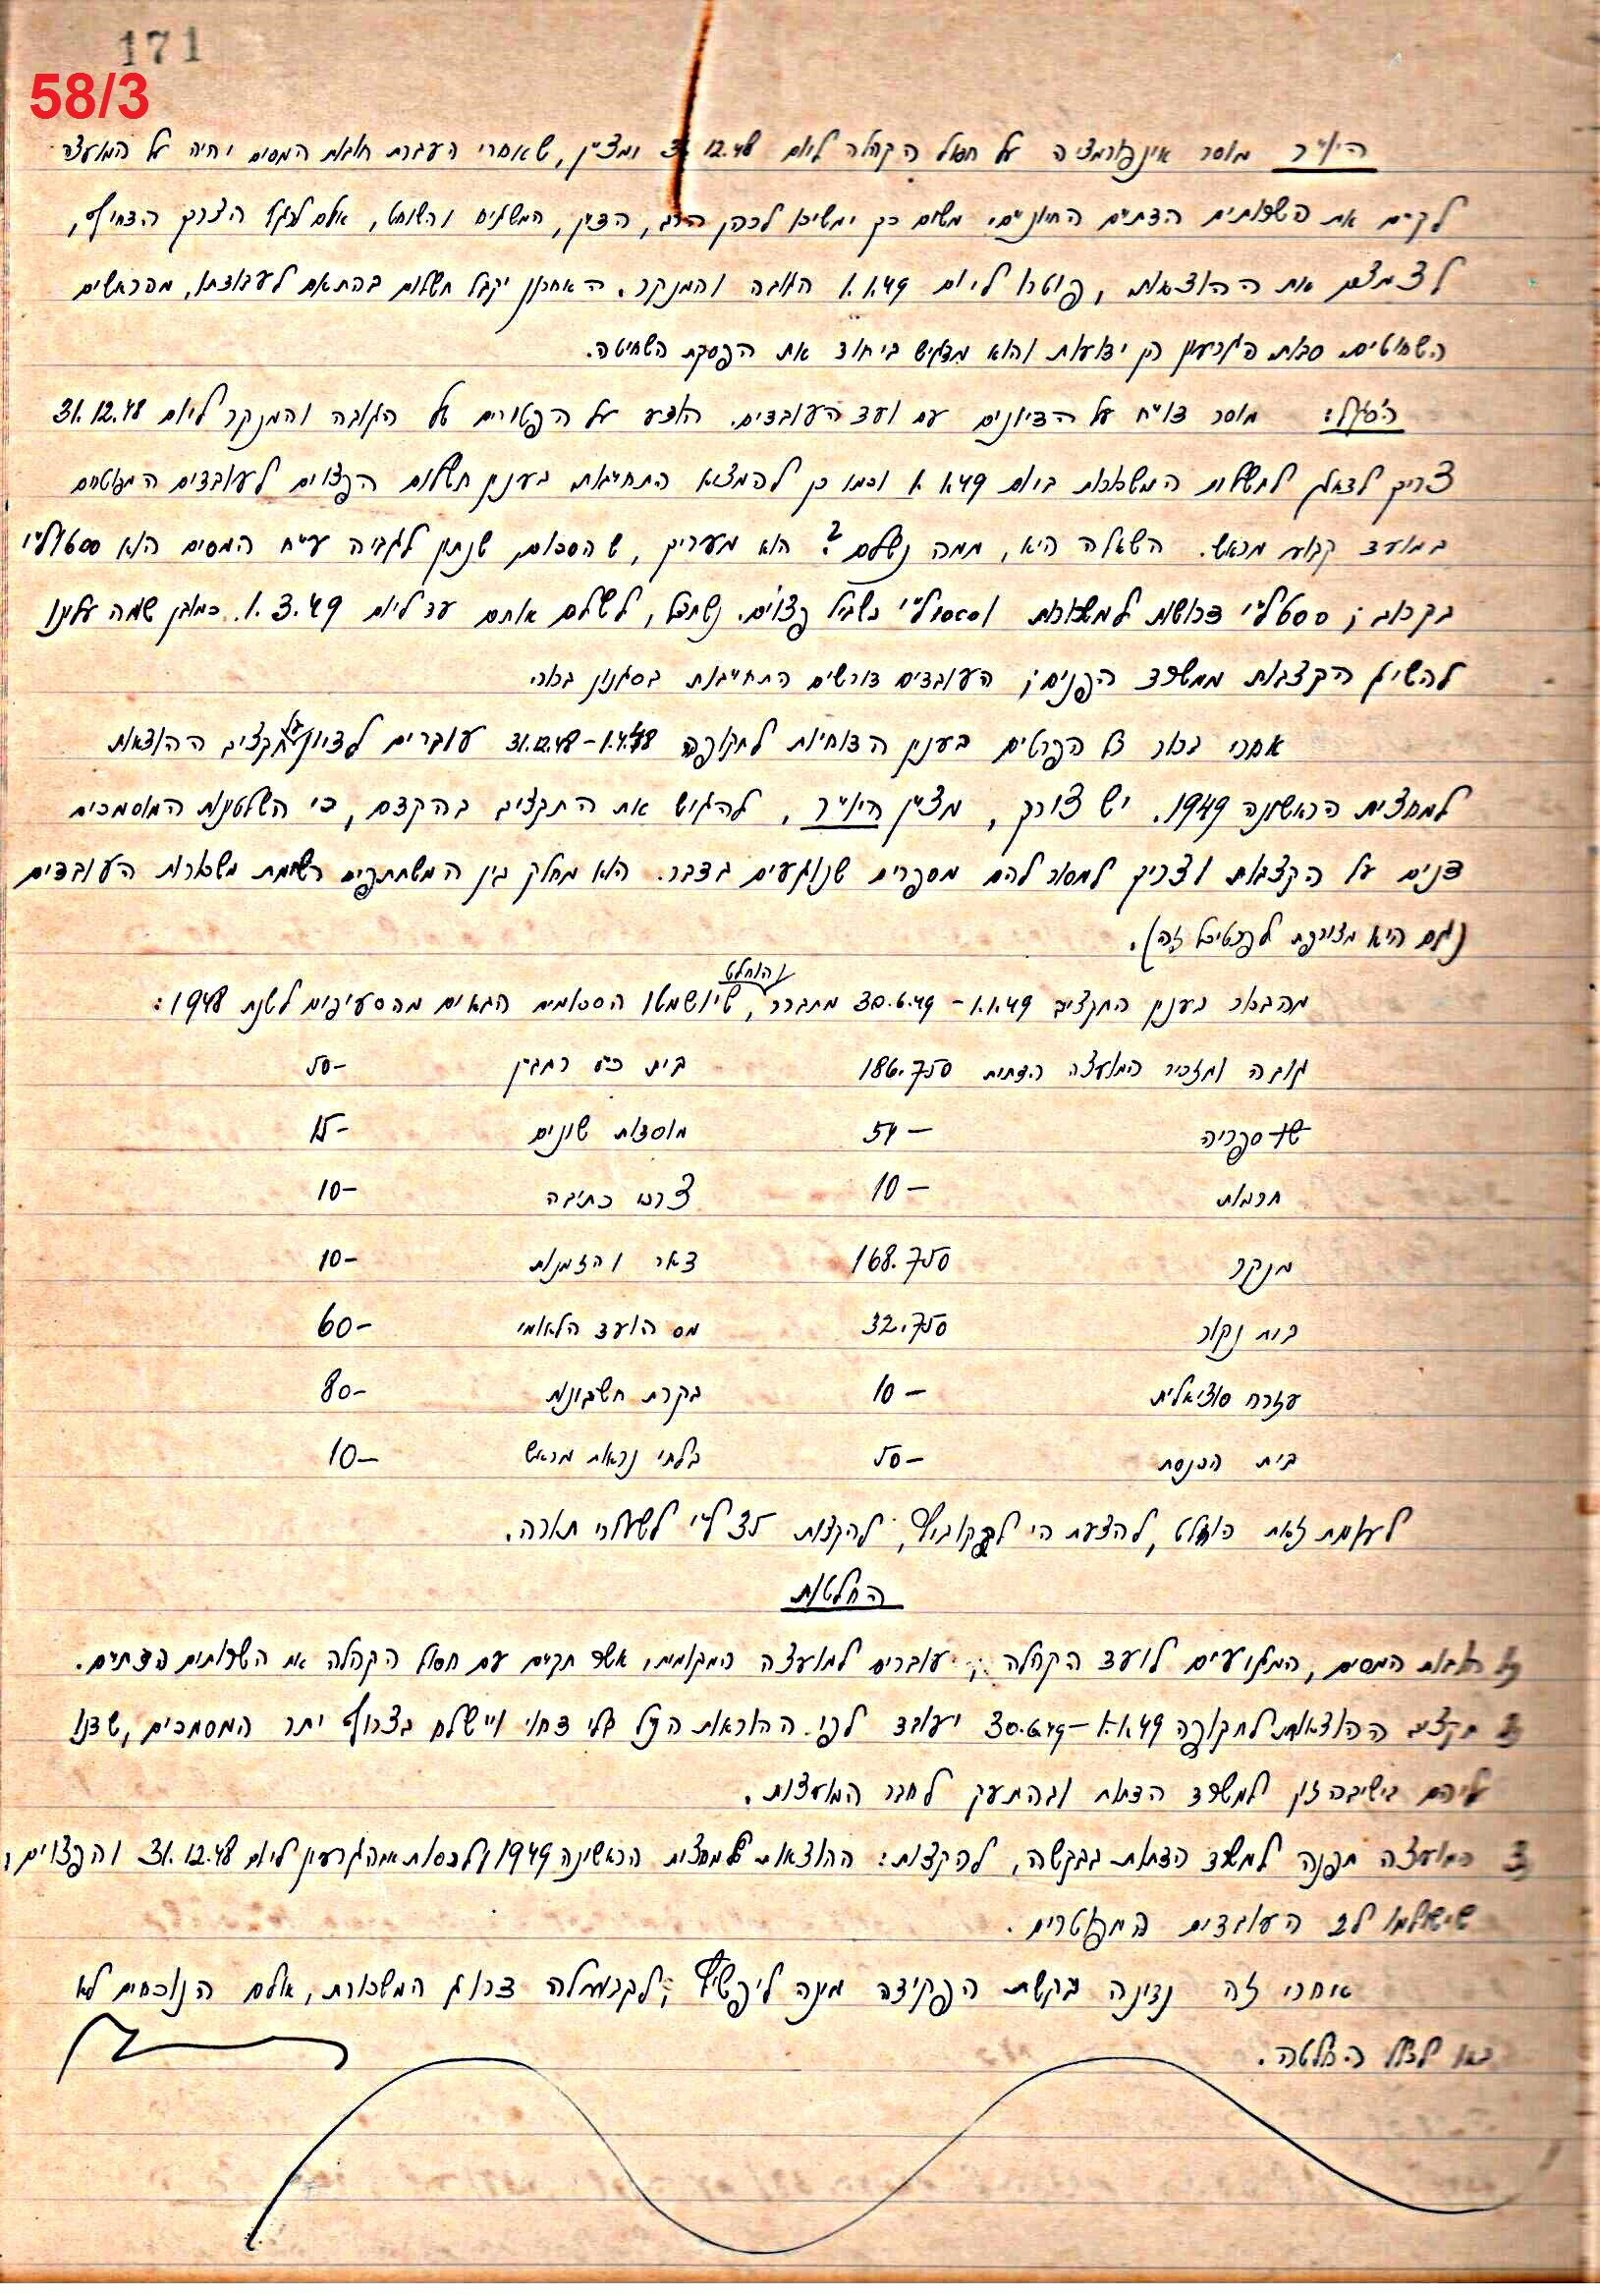 171
58/3
היו"ר מוסר אינפורמציה על חסול הקהלה ליום 31.12.48 ומציין, שאחרי העברת חובות המסים יהיה על המועצה
לקיים את השרותים הדתיים החיוניים; משום כך ימשיכו לכהן הרב, הדיין, המשגיח והשוחט, אולם לרגל הצורך הדחוף,
לצמצם את ההוצאות, פוטרו ליום 1.1.49 הגובה והמנקר. האחרון יקבל תשלום בהתאם לעבודתו, מהראשים
השחוטים. סבות הגרעון הן ידועות והוא מדגיש ביחוד את הפסקת השחיטה.
מוסר דו"ח על הדיונים עם ועד העובדים. הודע על הפטורים של הגובה והמנקר ליום 31.12.48
צריך לדאוג לתשלום המשכורת ביום 1.1.49 וכמו כן להמציא התחייבות בענין תשלום הפצוים לעובדים המפוטרים
במועד קבוע מראש. השאלה היא, ממה נשלם? הוא מעריך, שהסכום, שנתן לגביה ע"ח המסים הוא 600 ל"י
בקרוב; 500 ל"י דרושות למשכורת ו 1000 ל"י בשביל פצוים. נשתדל, לשלם אותם עד ליום 1.3.49. כמובן שמה עלינו
להשיג הקצבות ממשרד הפנים; העובדים דורשים התחייבות בסגנון ברור
אחרי ברור כל הפרטים בענין הדוחיות לתקופה 1.4.48-31.12.48 עוברים לדיון על תקציב ההוצאות
למחצית הראשונה 1949. יש צורך, מציין היו"ר, להגיש את התקציב בהקדם, כי השלטונות המוסמכים
דנים על הקצבות וצריך למסור להם מספרים שנוגעים בדבר. הוא מחלק בין המשתתפים רשימת משכורות העובדים
(גם היא מצורפת לפרטיכל זה).
והוחלט
מהברור בענין התקציב 1.1.49 - 30.6.49 מתברר, שיושמטו הסכומים הבאים מהסעיפים לשנת 1948:
גובה ומזכיר המועצה הדתית 186.750 בית כ"נ רמב"ן 50-
ספריה 54- מוסדות שונים 15-
חרבות 10- צרכי כתיבה 10-
מנקר 168.750 דאר והזמנות 10-
בית נקור 32.750 מס הועד הלאומי 60-
עזרה סוציאלית 10- בקרת חשבונות 80-
בית הכנסת 50- בלתי נראות מראש 10-
לעומת זאת הוחלט, להצעת ה' להקצות 35 ל"י לשעורי תורה.
החלטות
חובות המסים, המגיעים לועד הקהלה, עוברים למועצה המקומית, אשר תקים עם חסול הקהלה את השרותים הדתיים.
תקציב ההוצאות לתקופה 1.1.49-30.6.49 יעובד לפי ההוראות הנ"ל בלי דחוי ויישלח בצרוף יתר המסמכים, שדנו
עליהם בישיבה זו, למשרד הדתות ובהעתק לחבר המועצות.
3 המועצה תפנה למשרד הדתות בבקשה, להקצות: ההוצאות למחצית הראשונה 1949 ולכסות את הגרעון ליום 31.12.48 והפצוים,
שישולמו ל 2 העובדים המפוטרים.
אחרי זה נדונה בקשת הפקידה מינה ליפשיץ, לקבלה דרוג המשכורת, אולם הנוכחים לא
באו לכלל החלטה.